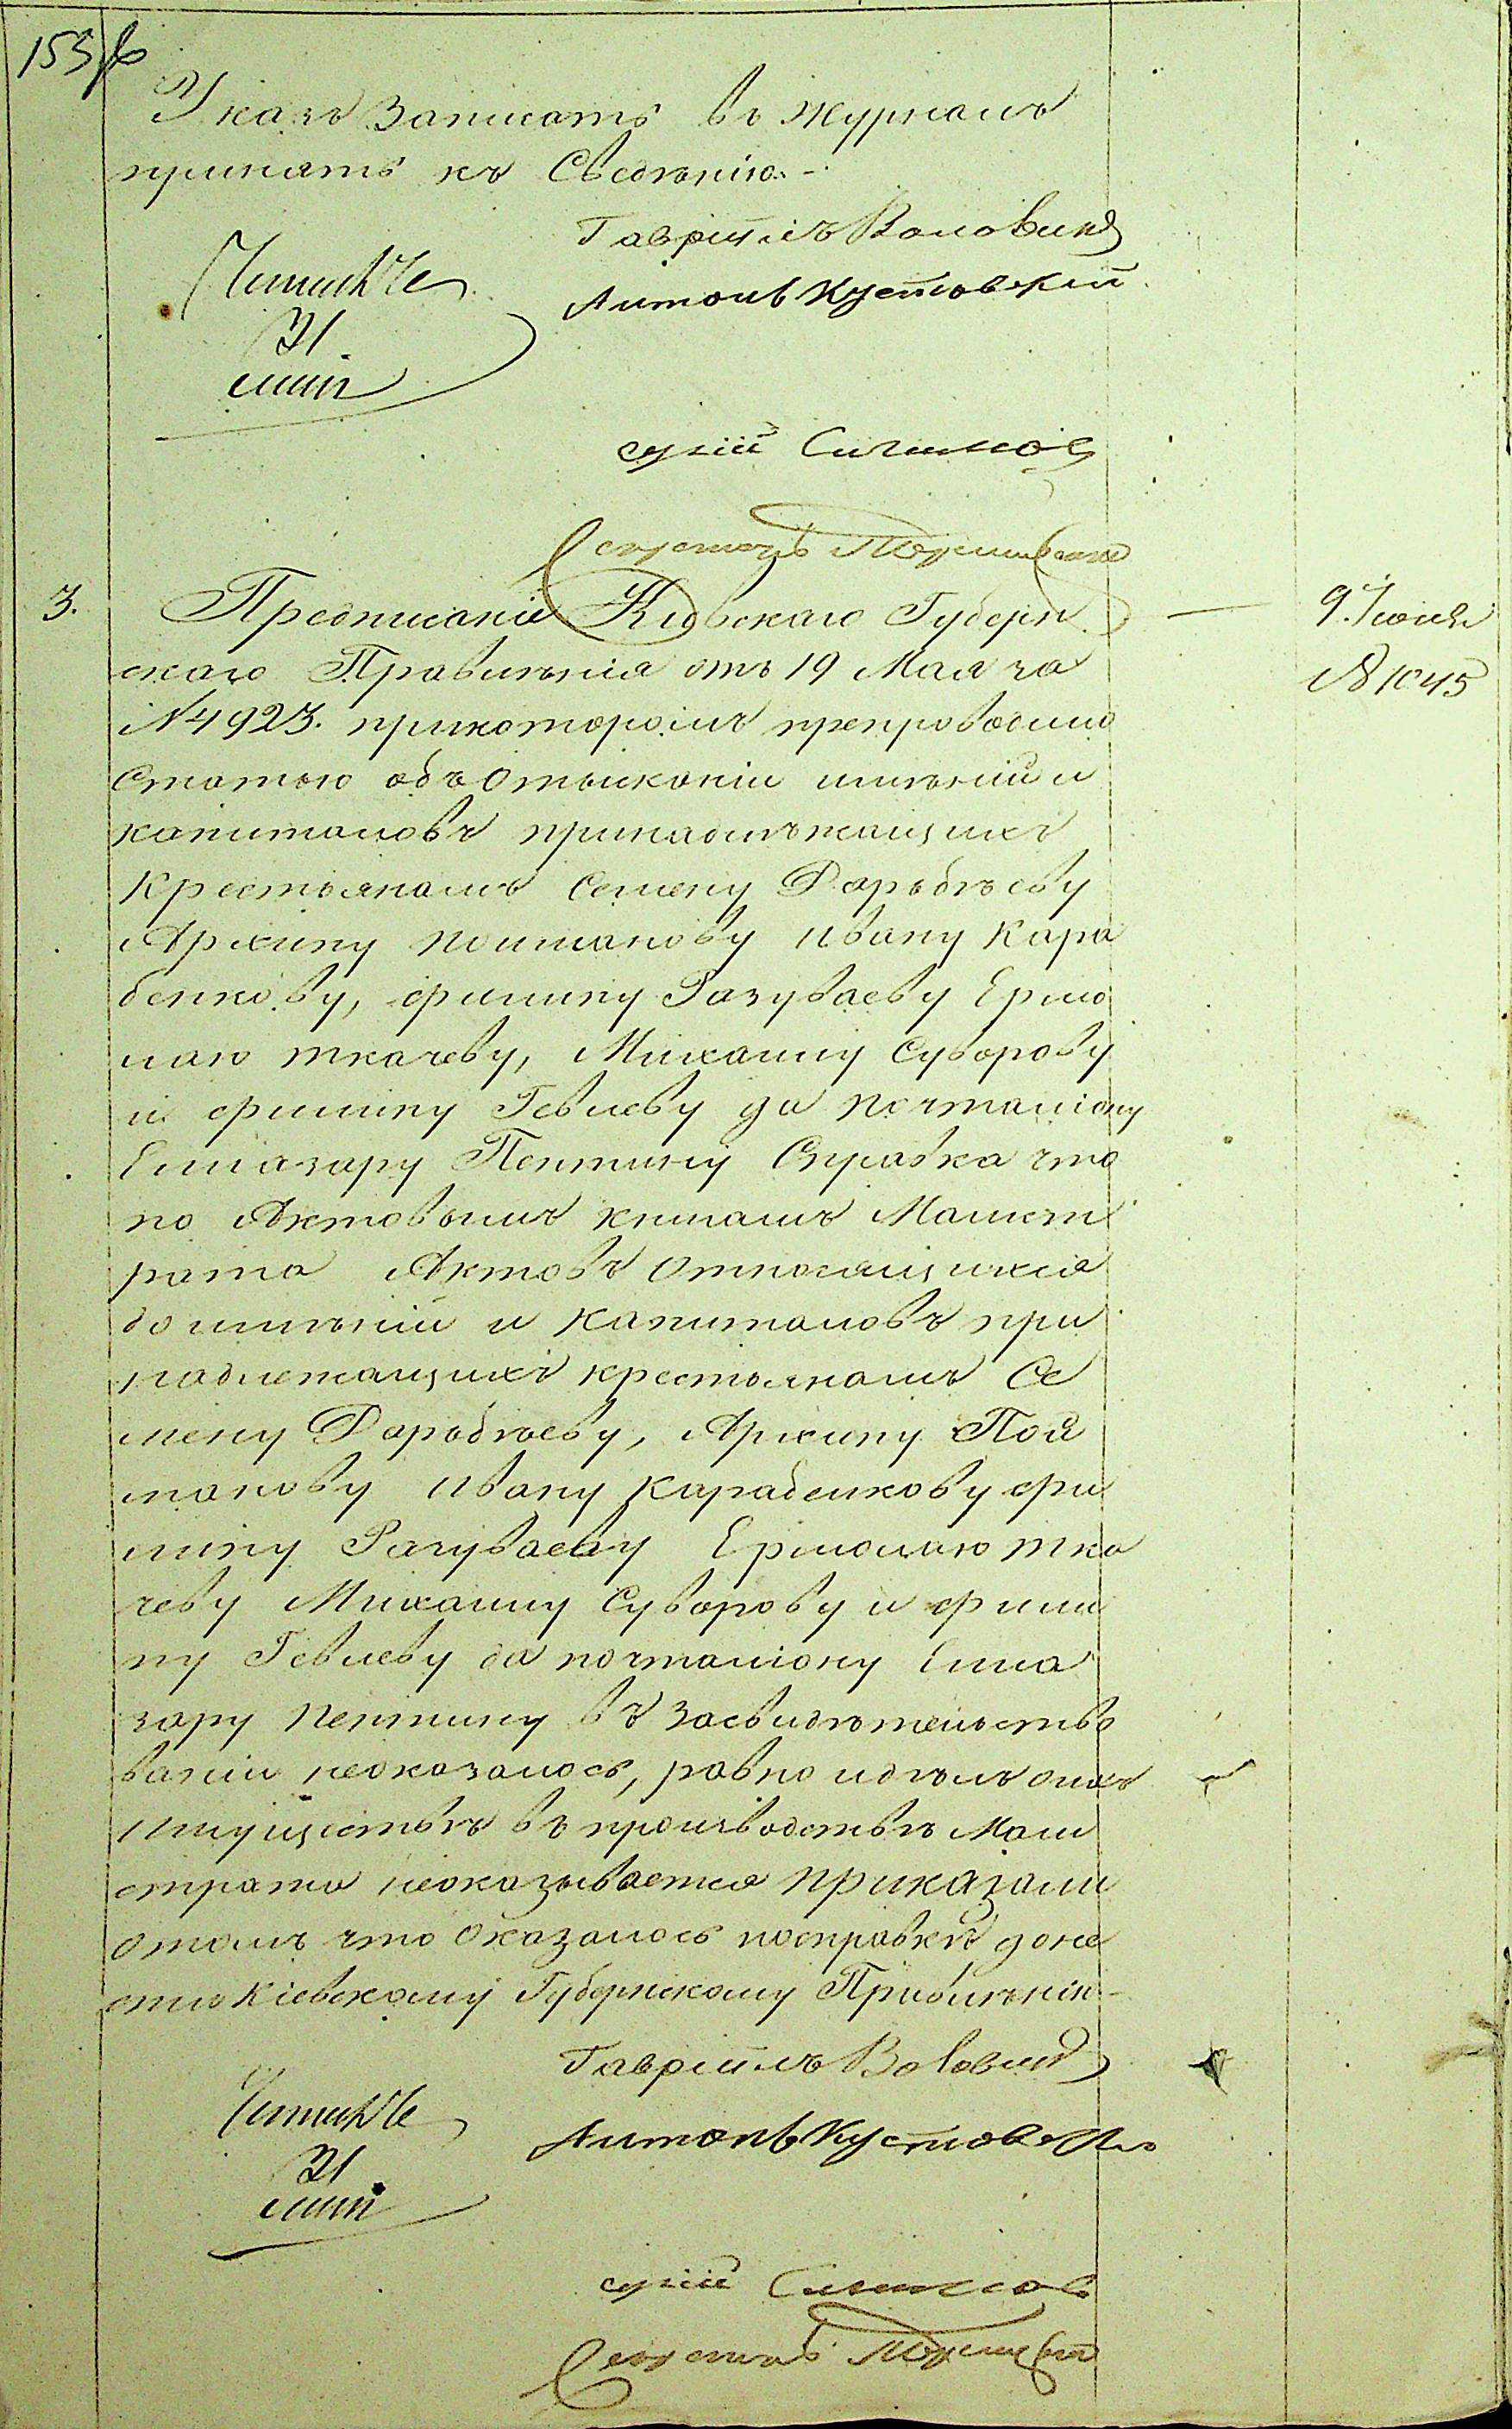 Указъ Записать въ Журналъ
принять къ Сведѣнію.-
Гавріилъ
Антонъ Кустовскій
3. Предписаніе Кіевскаго Губерн
скаго Правленія отъ 19 Мая за
№ 4923. прикоторомъ препроводило
Статью объ Отысканіи имѣній и
капиталовъ принадлѣжащихъ
Крестьянамъ Семену Даробѣеву
Архипу Поиманову Ивану Кара
бенкову, филипу Разуваеву Ермо
лаю ткачеву, Михаилу Суворову
и филипу Гевлеву да почталіону
Елиазару Пентину Справка что
по Актовымъ книгамъ Магист
рата Актовъ Относящихся
до имѣній и Капиталовъ при
надлежащихъ крестьянамъ Се
мену Даробѣеву, Архипу Пой
манову Ивану Карабенкову фи
липу Разуваеву Ермолаю тка
чеву Михаилу Суворову и фили
пу Гевлеву да почталіону Елиа
зару Пентину въ Засвидѣтельство
ваніи неоказалось, равно идѣлъ оныхъ
имуществъ въ производствѣ Маги
страта неоказывается приказали
Отомъ что Оказалось посправкѣ доне
сти Кіевскому Губернскому Правлѣнію-
9. Іюня
№ 1045
Гавріилъ
Антонъ Кустовскій